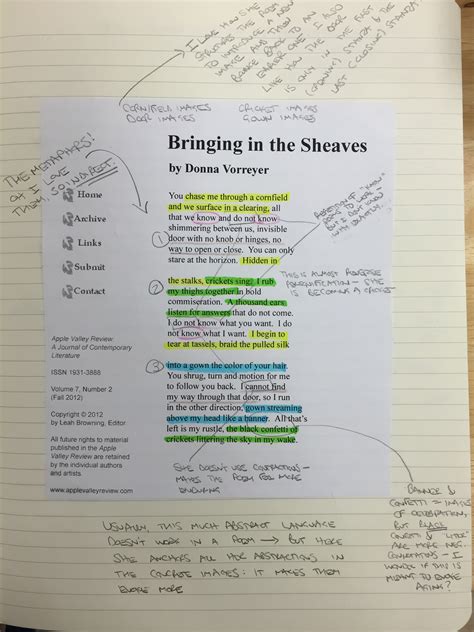 I LOVE HOW SHE
STRUCTURES THE POEM
TO INTRODUCE A NEW
IMAGE AND THEN
BOUNCE BACK TO AN
EARLIER ONE. I ALSO
LIKE HOW THE DOOR
IS ONLY IN THE FIRST
(OPENING) STANZA & THE
LAST (CLOSING) STANZA.
CORNFIELD IMAGES CRICKET IMAGES
DOOR IMAGES GOWN IMAGES
THE METAPHORS!
OH, I LOVE
THEM, SO INDIRECT.
Bringing in the Sheaves
by Donna Vorreyer
Home
Archive
Links
Submit
Contact
You chase me through a cornfield
and we surface in a clearing, all
that we know and do not know
shimmering between us, invisible
① door with no knob or hinges, no
way to open or close. You can only
stare at the horizon. Hidden in
② the stalks, crickets sing. I rub
my thighs together in bold
commiseration. A thousand ears
listen for answers that do not come.
I do not know what you want. I do
not know what I want. I begin to
tear at tassels, braid the pulled silk
③ into a gown the color of your hair.
You shrug, turn and motion for me
to follow you back. I cannot find
my way through that door, so I run
in the other direction, gown streaming
above my head like a banner. All that's
left is my rustle, the black confetti of
crickets littering the sky in my wake.
REPETITION OF "KNOW"
THIS IS ALMOST REVERSE
PERSONIFICATION - SHE
IS BECOMING A CRICKET
Apple Valley Review
A Journal of Contemporary
Literature
ISSN 1931-3888
Volume 7, Number 2
(Fall 2012)
Copyright © 2012
by Leah Browning, Editor
All future rights to material
published in the Apple
Valley Review are retained
by the individual authors
and artists.
www.applevalleyreview.com
SHE DOESN'T USE CONTRACTIONS -
MAKES THE POEM FAR MORE
BANNER &
CONFETTI = IMAGES
OF CELEBRATION,
BUT BLACK
CONFETTI & "LITTER"
ARE MORE NEG.
CONNOTATIONS - I
WONDER IF THIS IS
MEANT TO EVOKE
AGING?
USUALLY, THIS MUCH ABSTRACT LANGUAGE
DOESN'T WORK IN A POEM → BUT HERE
SHE ANCHORS ALL HER ABSTRACTIONS IN
THE CONCRETE IMAGES: IT MAKES THEM
EVOKE MORE